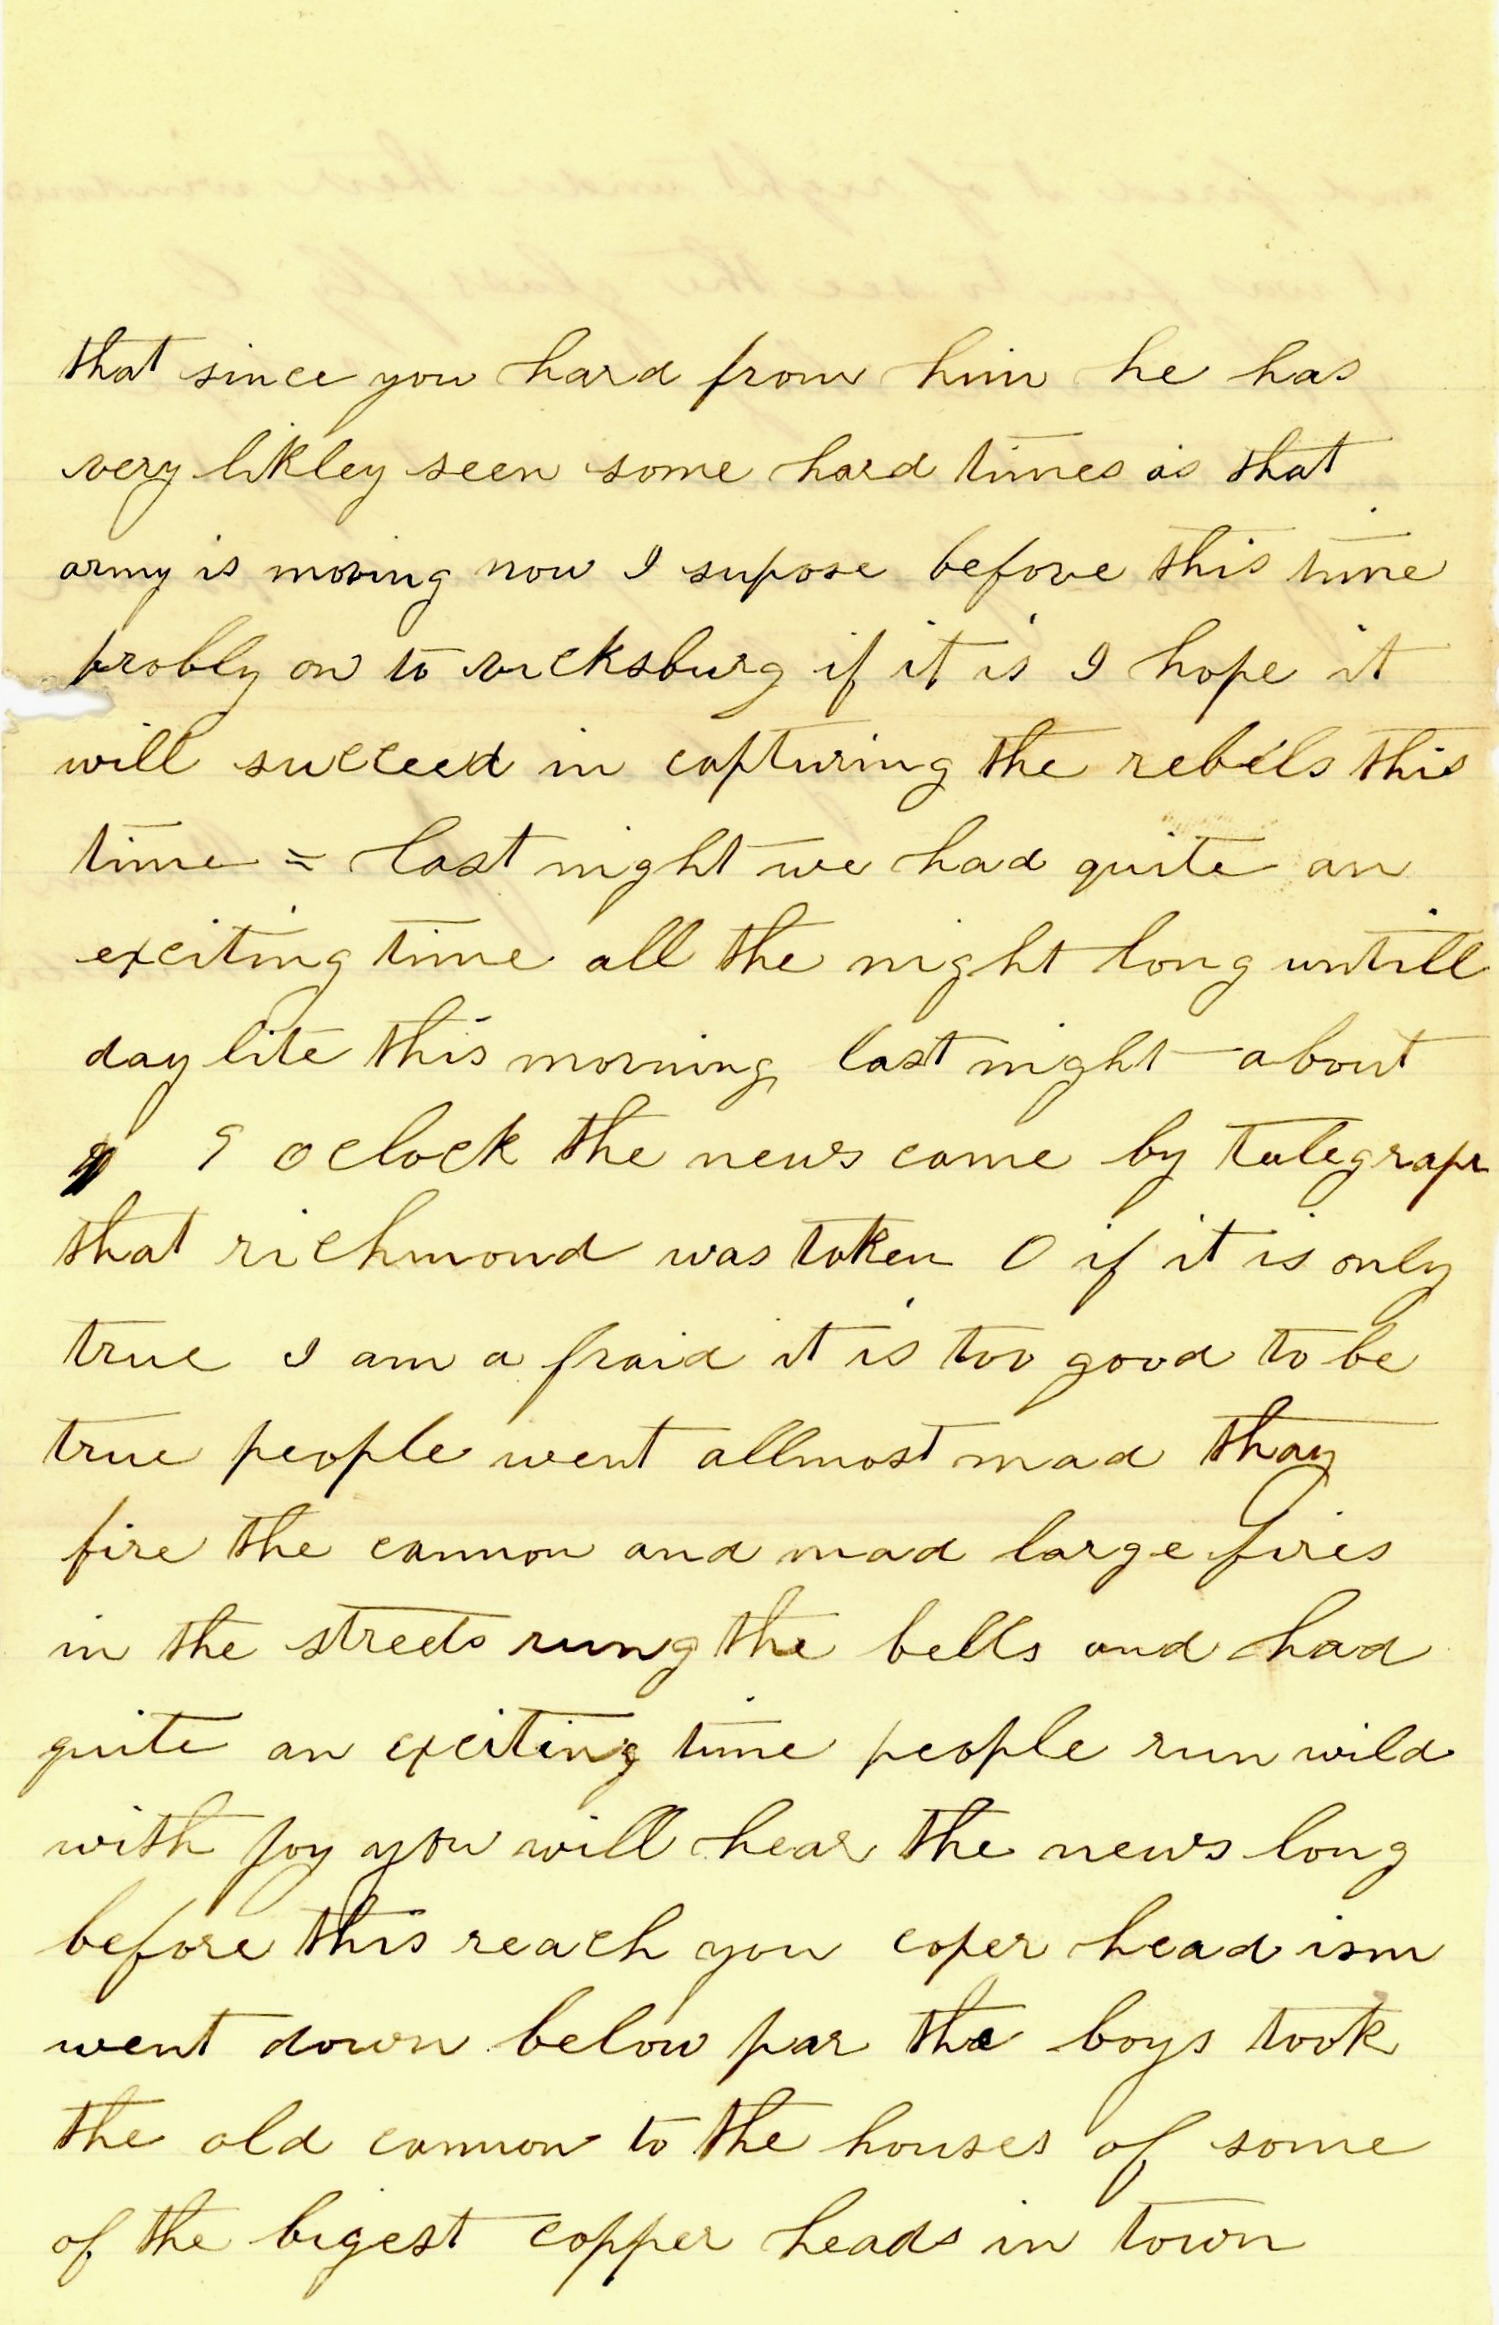 that since you hard from him he has
very likley seen some hard times as that
army is moving now I supose before this time
probly on to vicksburg if it is I hope it
will succeed in capturing the rebels this
time = last night we had quite an
exciting time all the night long untill
day lite this morning last night about
9 oclock the news came by telegraph
that richmond was taken O if it is only
true I am a fraid it is too good to be
true people went allmost mad thay
fire the cannon and mad large fires
in the streets rung the bells and had
quite an exciting time people run wild
with joy you will hear the news long
before this reach you coper head ism
went down below par the boys took
the old cannon to the houses of some
of the bigest copper heads in town